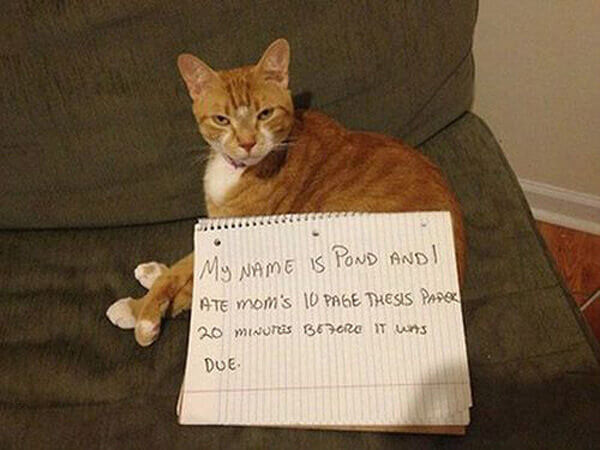 My NAME IS POND AND I
ATE mom's 10 PAGE THESIS PAPER
20 MINUTES BEFORE IT WAS
DUE.